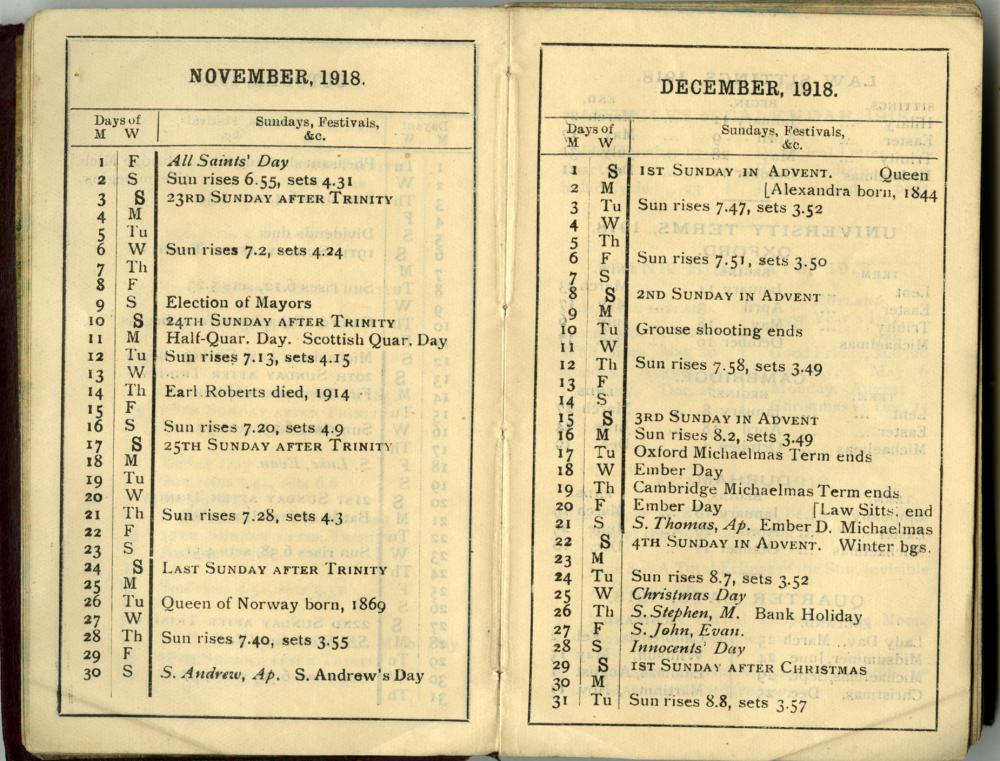 NOVEMBER, 1918.
Days of Sundays, Festivals,
M W &c.
1 F All Saints' Day
2 S Sun rises 6.55, sets 4.31
3 S 23RD SUNDAY AFTER TRINITY
4 M
5 Tu
6 W Sun rises 7.2, sets 4.24
7 Th
8 F
9 S Election of Mayors
10 S 24TH SUNDAY AFTER TRINITY
11 M Half-Quar. Day. Scottish Quar. Day
12 Tu Sun rises 7.13, sets 4.15
13 W
14 Th Earl Roberts died, 1914
15 F
16 S Sun rises 7.20, sets 4.9
17 S 25TH SUNDAY AFTER TRINITY
18 M
19 Tu
20 W
21 Th Sun rises 7.28, sets 4.3
22 F
23 S
24 S LAST SUNDAY AFTER TRINITY
25 M
26 Tu Queen of Norway born, 1869
27 W
28 Th Sun rises 7.40, sets 3.55
29 F
30 S S. Andrew, Ap. S. Andrew's Day
DECEMBER, 1918.
Days of Sundays, Festivals,
M W &c.
1 S 1ST SUNDAY IN ADVENT. Queen
2 M [Alexandra born, 1844
3 Tu Sun rises 7.47, sets 3.52
4 W
5 Th
6 F Sun rises 7.51, sets 3.50
7 S
8 S 2ND SUNDAY IN ADVENT
9 M
10 Tu Grouse shooting ends
11 W
12 Th Sun rises 7.58, sets 3.49
13 F
14 S
15 S 3RD SUNDAY IN ADVENT
16 M Sun rises 8.2, sets 3.49
17 Tu Oxford Michaelmas Term ends
18 W Ember Day
19 Th Cambridge Michaelmas Term ends
20 F Ember Day [Law Sitts. end
21 S S. Thomas, Ap. Ember D. Michaelmas
22 S 4TH SUNDAY IN ADVENT. Winter bgs.
23 M
24 Tu Sun rises 8.7, sets 3.52
25 W Christmas Day
26 Th S. Stephen, M. Bank Holiday
27 F S. John, Evan.
28 S Innocents' Day
29 S 1ST SUNDAY AFTER CHRISTMAS
30 M
31 Tu Sun rises 8.8, sets 3.57